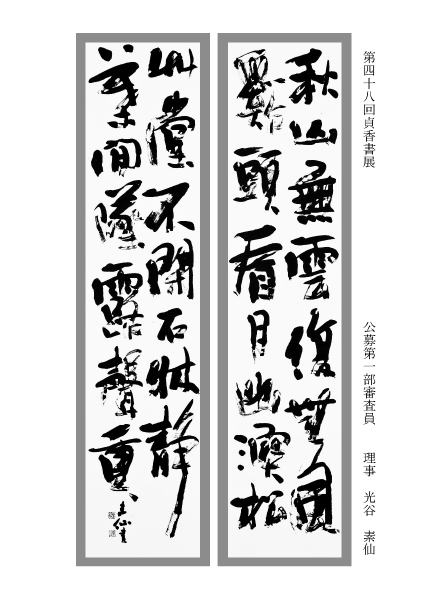 第四十八回貞香書展
公募第一部審査員 理事 光谷 素仙
秋山無雲復無風
谿頭看月出深松
艸堂不閉石牀静
葉間墜露聲重〻
素仙書